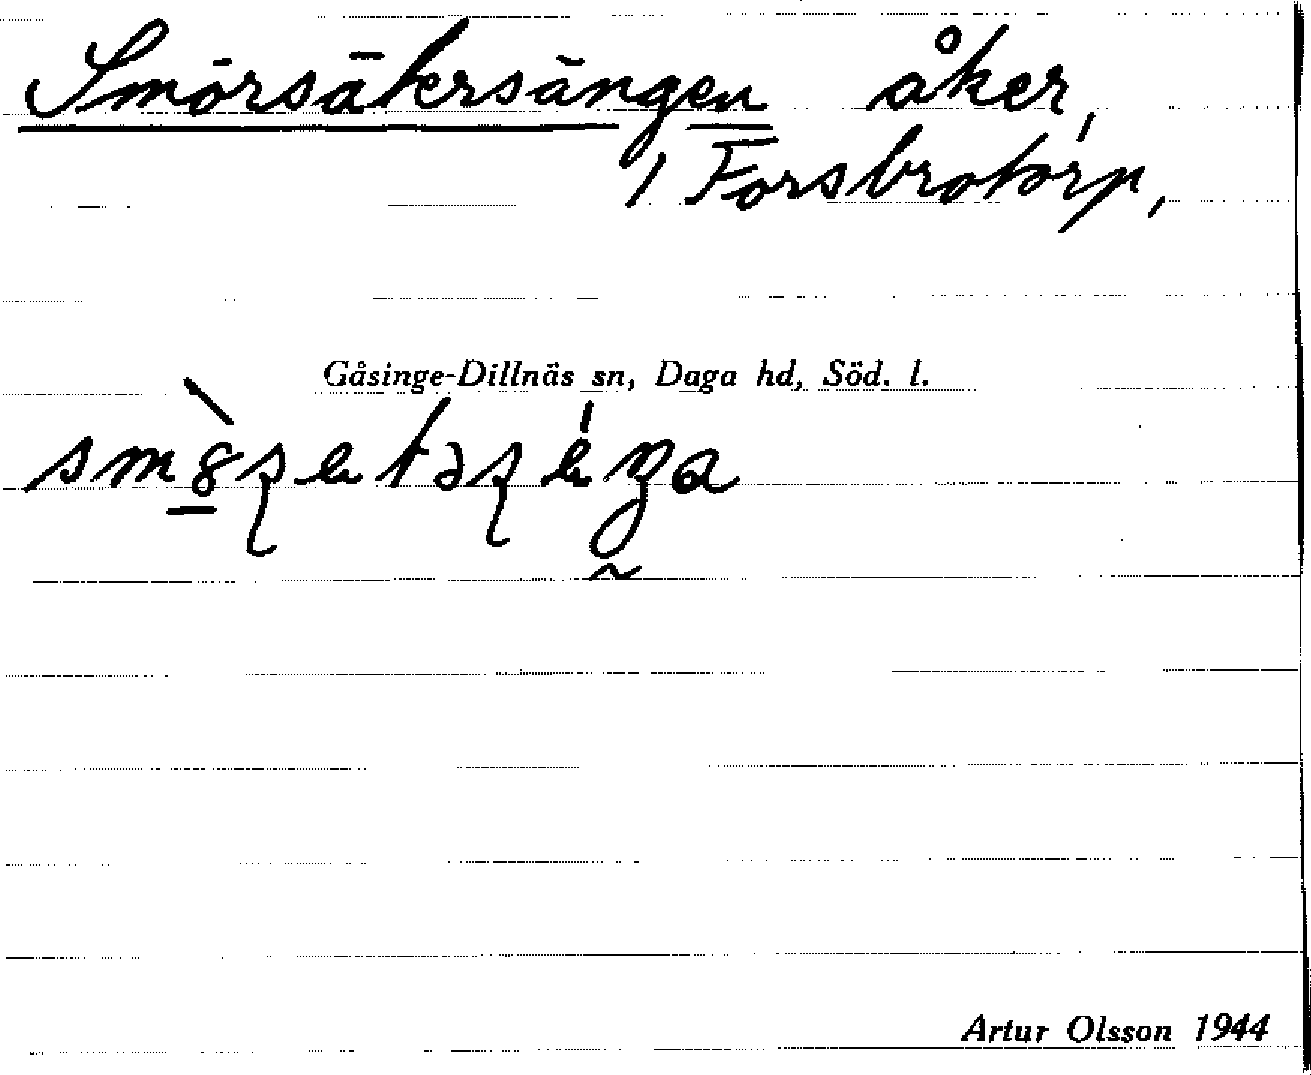 Smörsätersängen åker,
, Forsbrotorp,
Gåsinge-Dillnäs sn, Daga hd, Söd. l.
Artur Olsson 1944